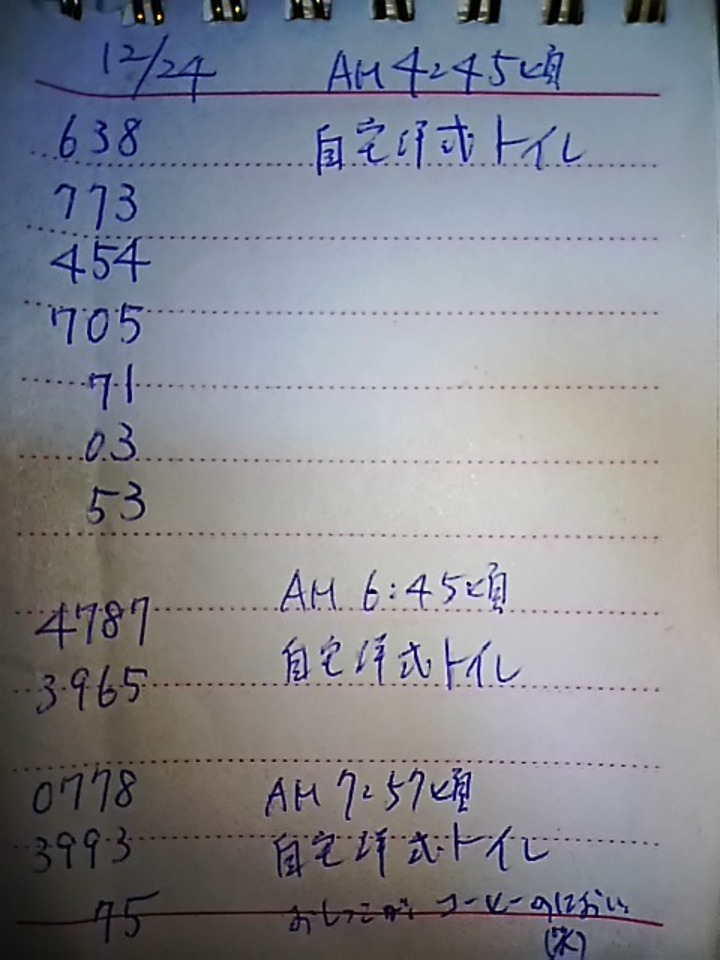 12/24 AM 4:45頃
638 自宅洋式トイレ
773
454
705
71
03
53
AM 6:45頃
4787
自宅洋式トイレ
3965
0778 AM 7:57頃
3993 自宅洋式トイレ
75 おしっこがコーヒーのにおい
(水)